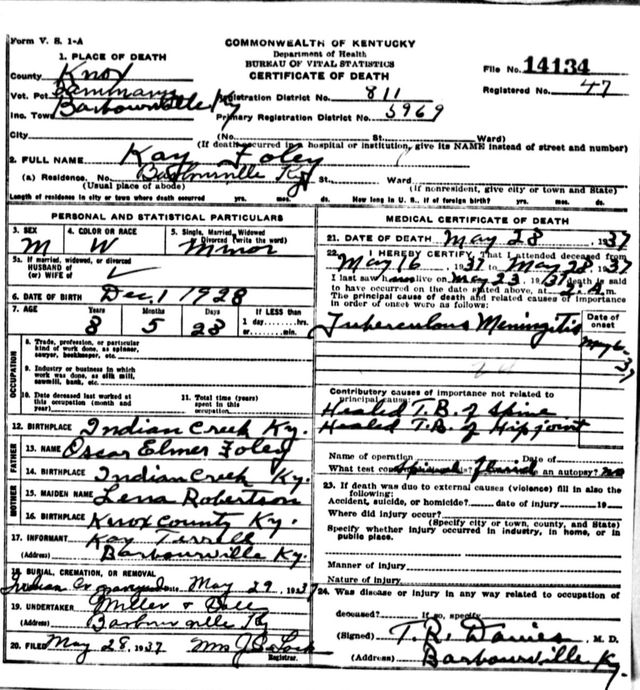 Form V. S. 1-A
COMMONWEALTH OF KENTUCKY
Department of Health
BUREAU OF VITAL STATISTICS
CERTIFICATE OF DEATH
File No. 14134
Registered No. 47
1. PLACE OF DEATH
County Knox
Vot. Pct.
Inc. Town Barbourville Ky
Registration District No. 811
Primary Registration District No. 5969
City (No. St. Ward)
(If death occurred in a hospital or institution, give its NAME instead of street and number)
2. FULL NAME Kay Foley
(a) Residence. No. Barbourville Ky St. Ward
(Usual place of abode) (If nonresident, give city or town and State)
Length of residence in city or town where death occurred yrs. mos. ds. How long in U. S., if of foreign birth? yrs. mos. ds.
PERSONAL AND STATISTICAL PARTICULARS
3. SEX M
4. COLOR OR RACE W
5. Single, Married, Widowed Divorced (write the word) Minor
5a. If married, widowed, or divorced
HUSBAND of
(or) WIFE of
6. DATE OF BIRTH Dec, 1 1928
7. AGE Years Months Days If LESS than
8 5 28 1 day hrs.
or min.
OCCUPATION
8. Trade, profession, or particular
kind of work done, as spinner,
sawyer, bookkeeper, etc.
9. Industry or business in which
work was done, as silk mill,
sawmill, bank, etc.
10. Date deceased last worked at
this occupation (month and
year)
11. Total time (years)
spent in this
occupation
12. BIRTHPLACE Indian Creek Ky.
FATHER
13. NAME Oscar Elmer Foley
14. BIRTHPLACE Indian Creek Ky.
MOTHER
15. MAIDEN NAME Lena Robertson
16. BIRTHPLACE Knox County Ky.
17. INFORMANT Kay
(Address) Barbourville Ky.
18. BURIAL, CREMATION, OR REMOVAL
Indian Cr Date May 29, 1937
19. UNDERTAKER Miller &
(Address) Barbourville Ky
20. FILED May 28, 1937 Mrs J
Registrar.
MEDICAL CERTIFICATE OF DEATH
21. DATE OF DEATH May 28, 1937
22. I HEREBY CERTIFY, That I attended deceased from
May 16, 1937 to May 28, 1937
I last saw alive on May 23, 1937 death is said
to have occurred on the date stated above, at m.
The principal cause of death and related causes of importance
in order of onset were as follows:
Date of onset
Tuberculous Meningitis
May 6 37
Contributory causes of importance not related to
principal cause:
Healed T.B. of Spine
Healed T.B. of Hip joint
Name of operation Date of
What test Spinal fluid an autopsy? no
23. If death was due to external causes (violence) fill in also the
following:
Accident, suicide, or homicide? date of injury 19
Where did injury occur?
(Specify city or town, county, and State)
Specify whether injury occurred in industry, in home, or in
public place.
Manner of injury
Nature of injury
24. Was disease or injury in any way related to occupation of
deceased? If so, specify
(Signed) T. R. Davies M. D.
(Address) Barbourville Ky.